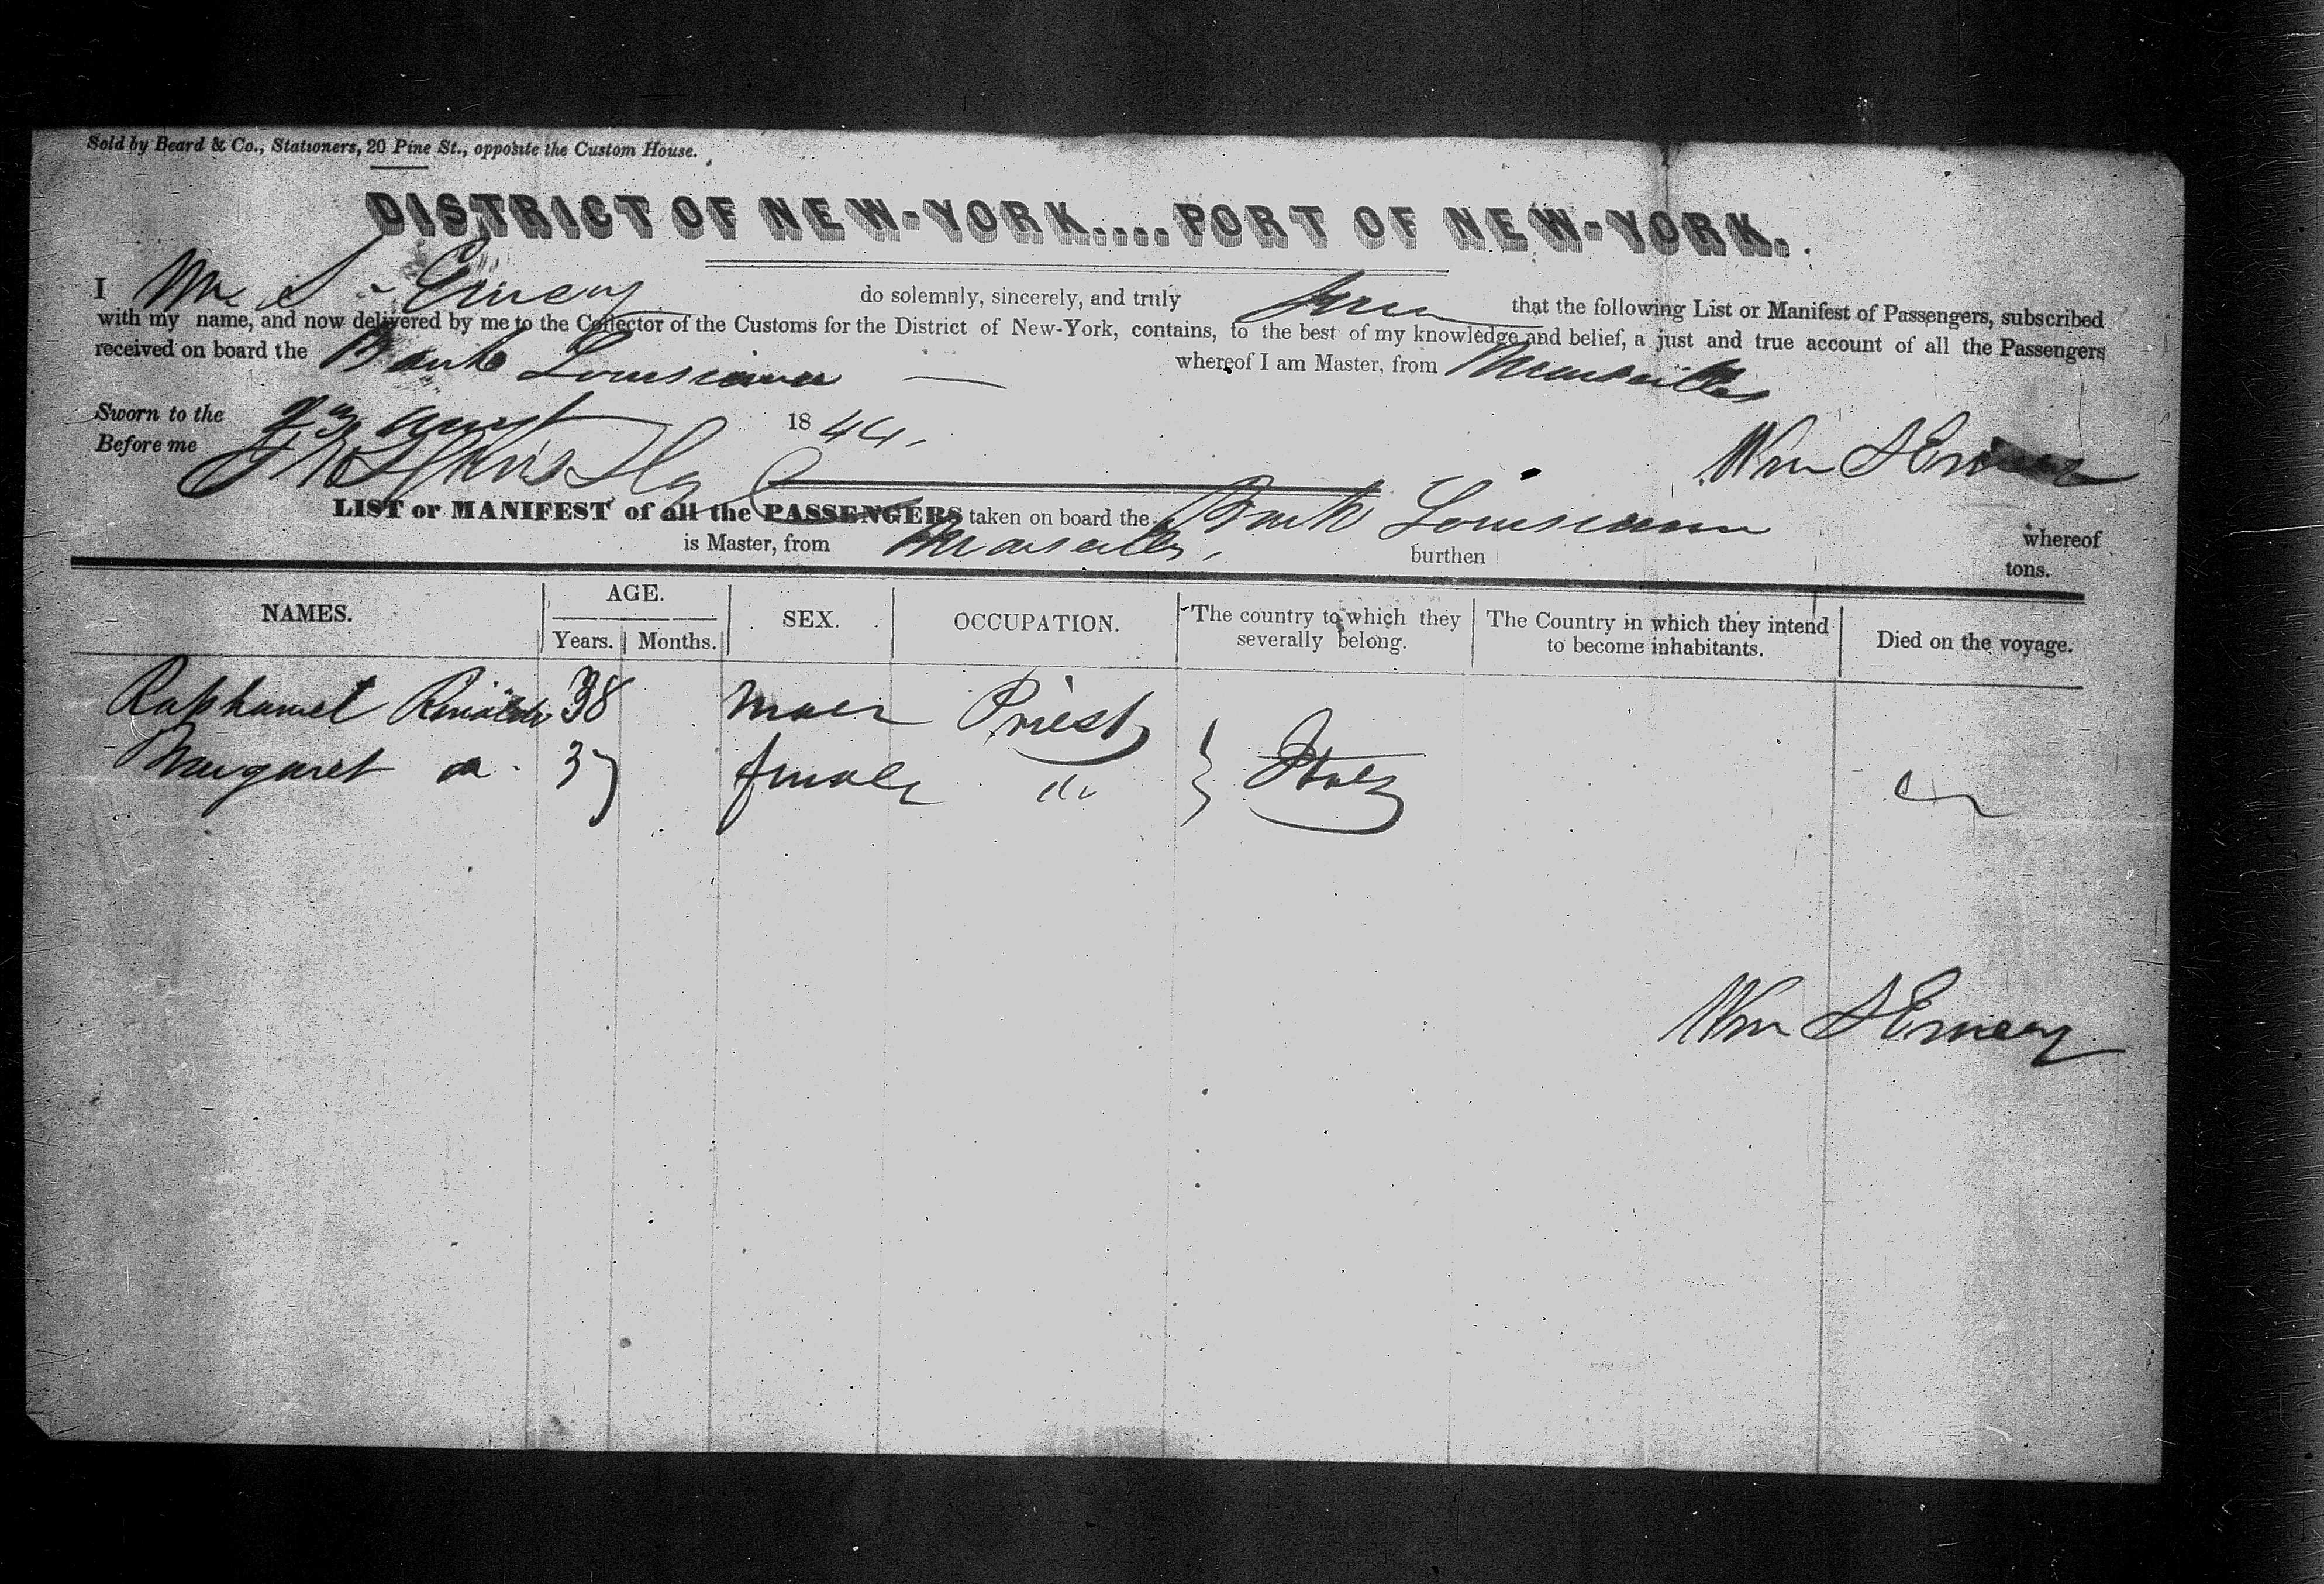 Sold by Beard & Co., Stationers, 20 Pine St., opposite the Custom House.
DISTRICT OF NEW-YORK....PORT OF NEW-YORK.
I Wm S Emery do solemnly, sincerely, and truly that the following List or Manifest of Passengers, subscribed
with my name, and now delivered by me to the Collector of the Customs for the District of New-York, contains, to the best of my knowledge and belief, a just and true account of all the Passengers
received on board the Bark Louisiana whereof I am Master, from Marseilles
Sworn to the 23 1844.
Before me
Wm S Emery
LIST or MANIFEST of all the PASSENGERS taken on board the Bark Louisiana whereof
is Master, from Marseilles, burthen tons.
NAMES. AGE. SEX. OCCUPATION. The country to which they severally belong. The Country in which they intend to become inhabitants. Died on the voyage.
Years. Months.
38 Priest
Margaret 37 female " Italy
Wm S Emery